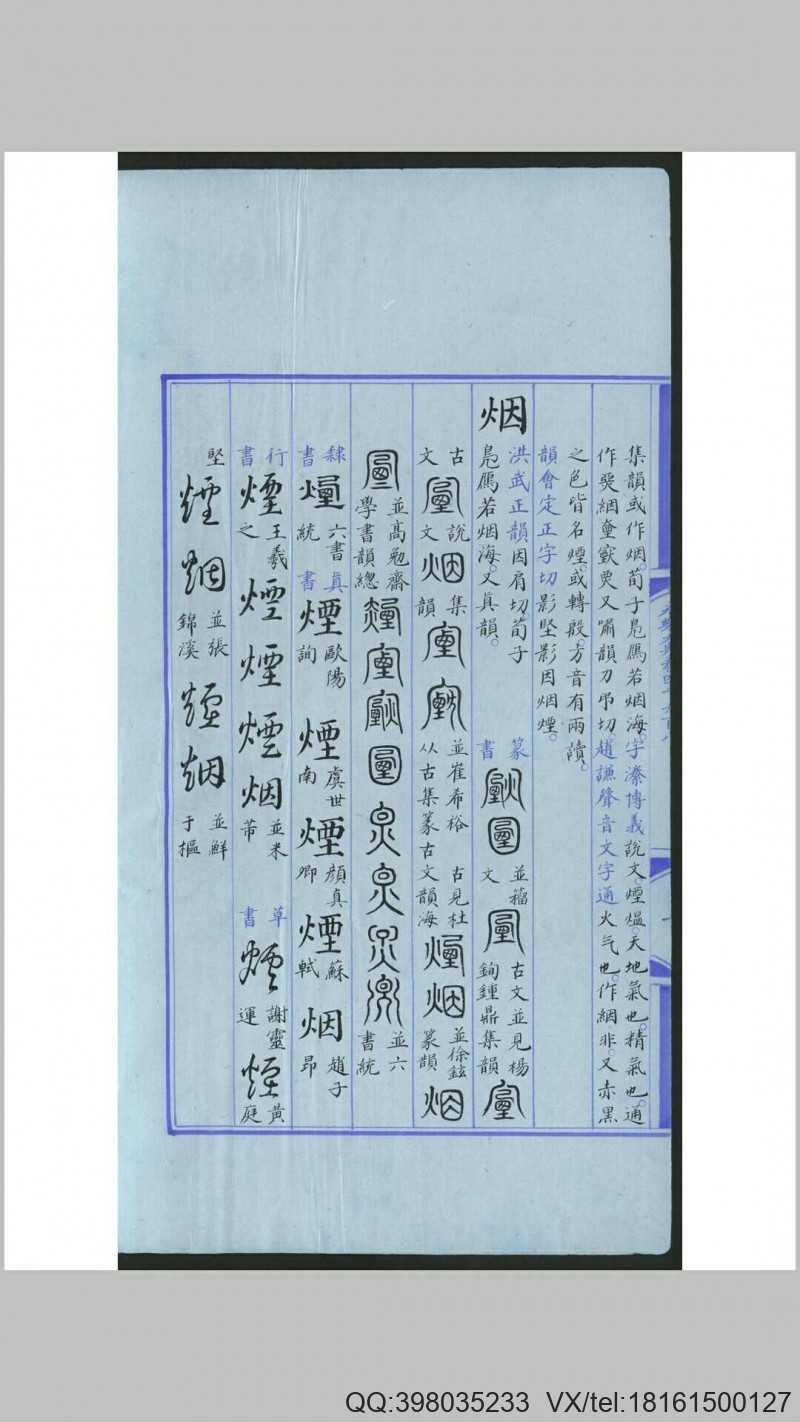 集韻或作烟。荀子鳧鴈若烟海。字潫博義說文。煙熅。天地氣也。精氣也。通
作烎絪。又嘯韻刀弔切趙謙聲音文字通火气也。作絪非。又赤黑
之色皆名煙。或轉殷。方音有兩讀。
韻會定正字切影堅影因烟煙。
烟
洪武正韻因肩切荀子
鳧鴈若烟海。又真韻。
篆書
並籀文
古文並見楊
鉤鍾鼎集韻
古文
說文
烟
集韻
並崔希裕
从古集篆古文韻海
古見杜
烟
並徐鉉
篆韻
烟
並高勉齋
學書韻總
並六
書統
隸書
六書統
真書
煙
歐陽詢
煙
虞世南
煙
顏真卿
煙
蘇軾
烟
趙子昂
行書
煙
王羲之
煙
煙
煙
烟
並米芾
草書
煙
謝靈運
煙
黃庭
堅
煙
烟
並張錦溪
煙
烟
並鮮于樞
QQ:398035233 VX/tel:18161500127